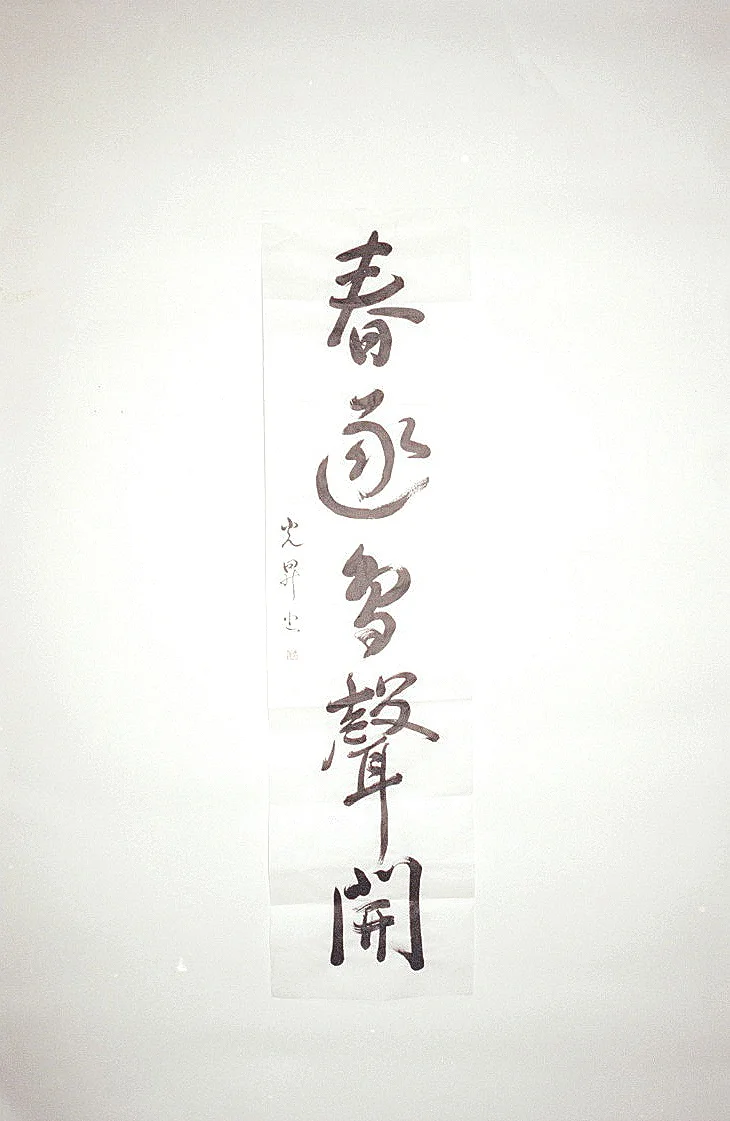 春逐鳥聲開
光昇書